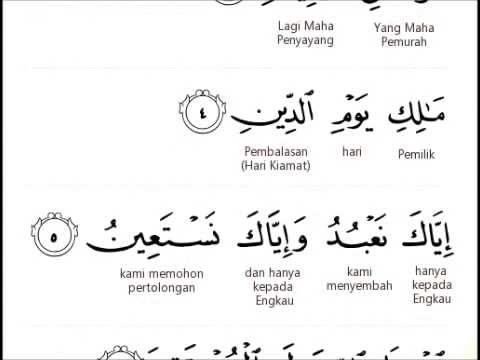 Yang Maha Pemurah Lagi Maha Penyayang
مَٰلِكِ يَوْمِ الدِّينِ ٤
Pemilik hari Pembalasan (Hari Kiamat)
إِيَّاكَ نَعْبُدُ وَإِيَّاكَ نَسْتَعِينُ ٥
hanya kepada Engkau kami menyembah dan hanya kepada Engkau kami memohon pertolongan